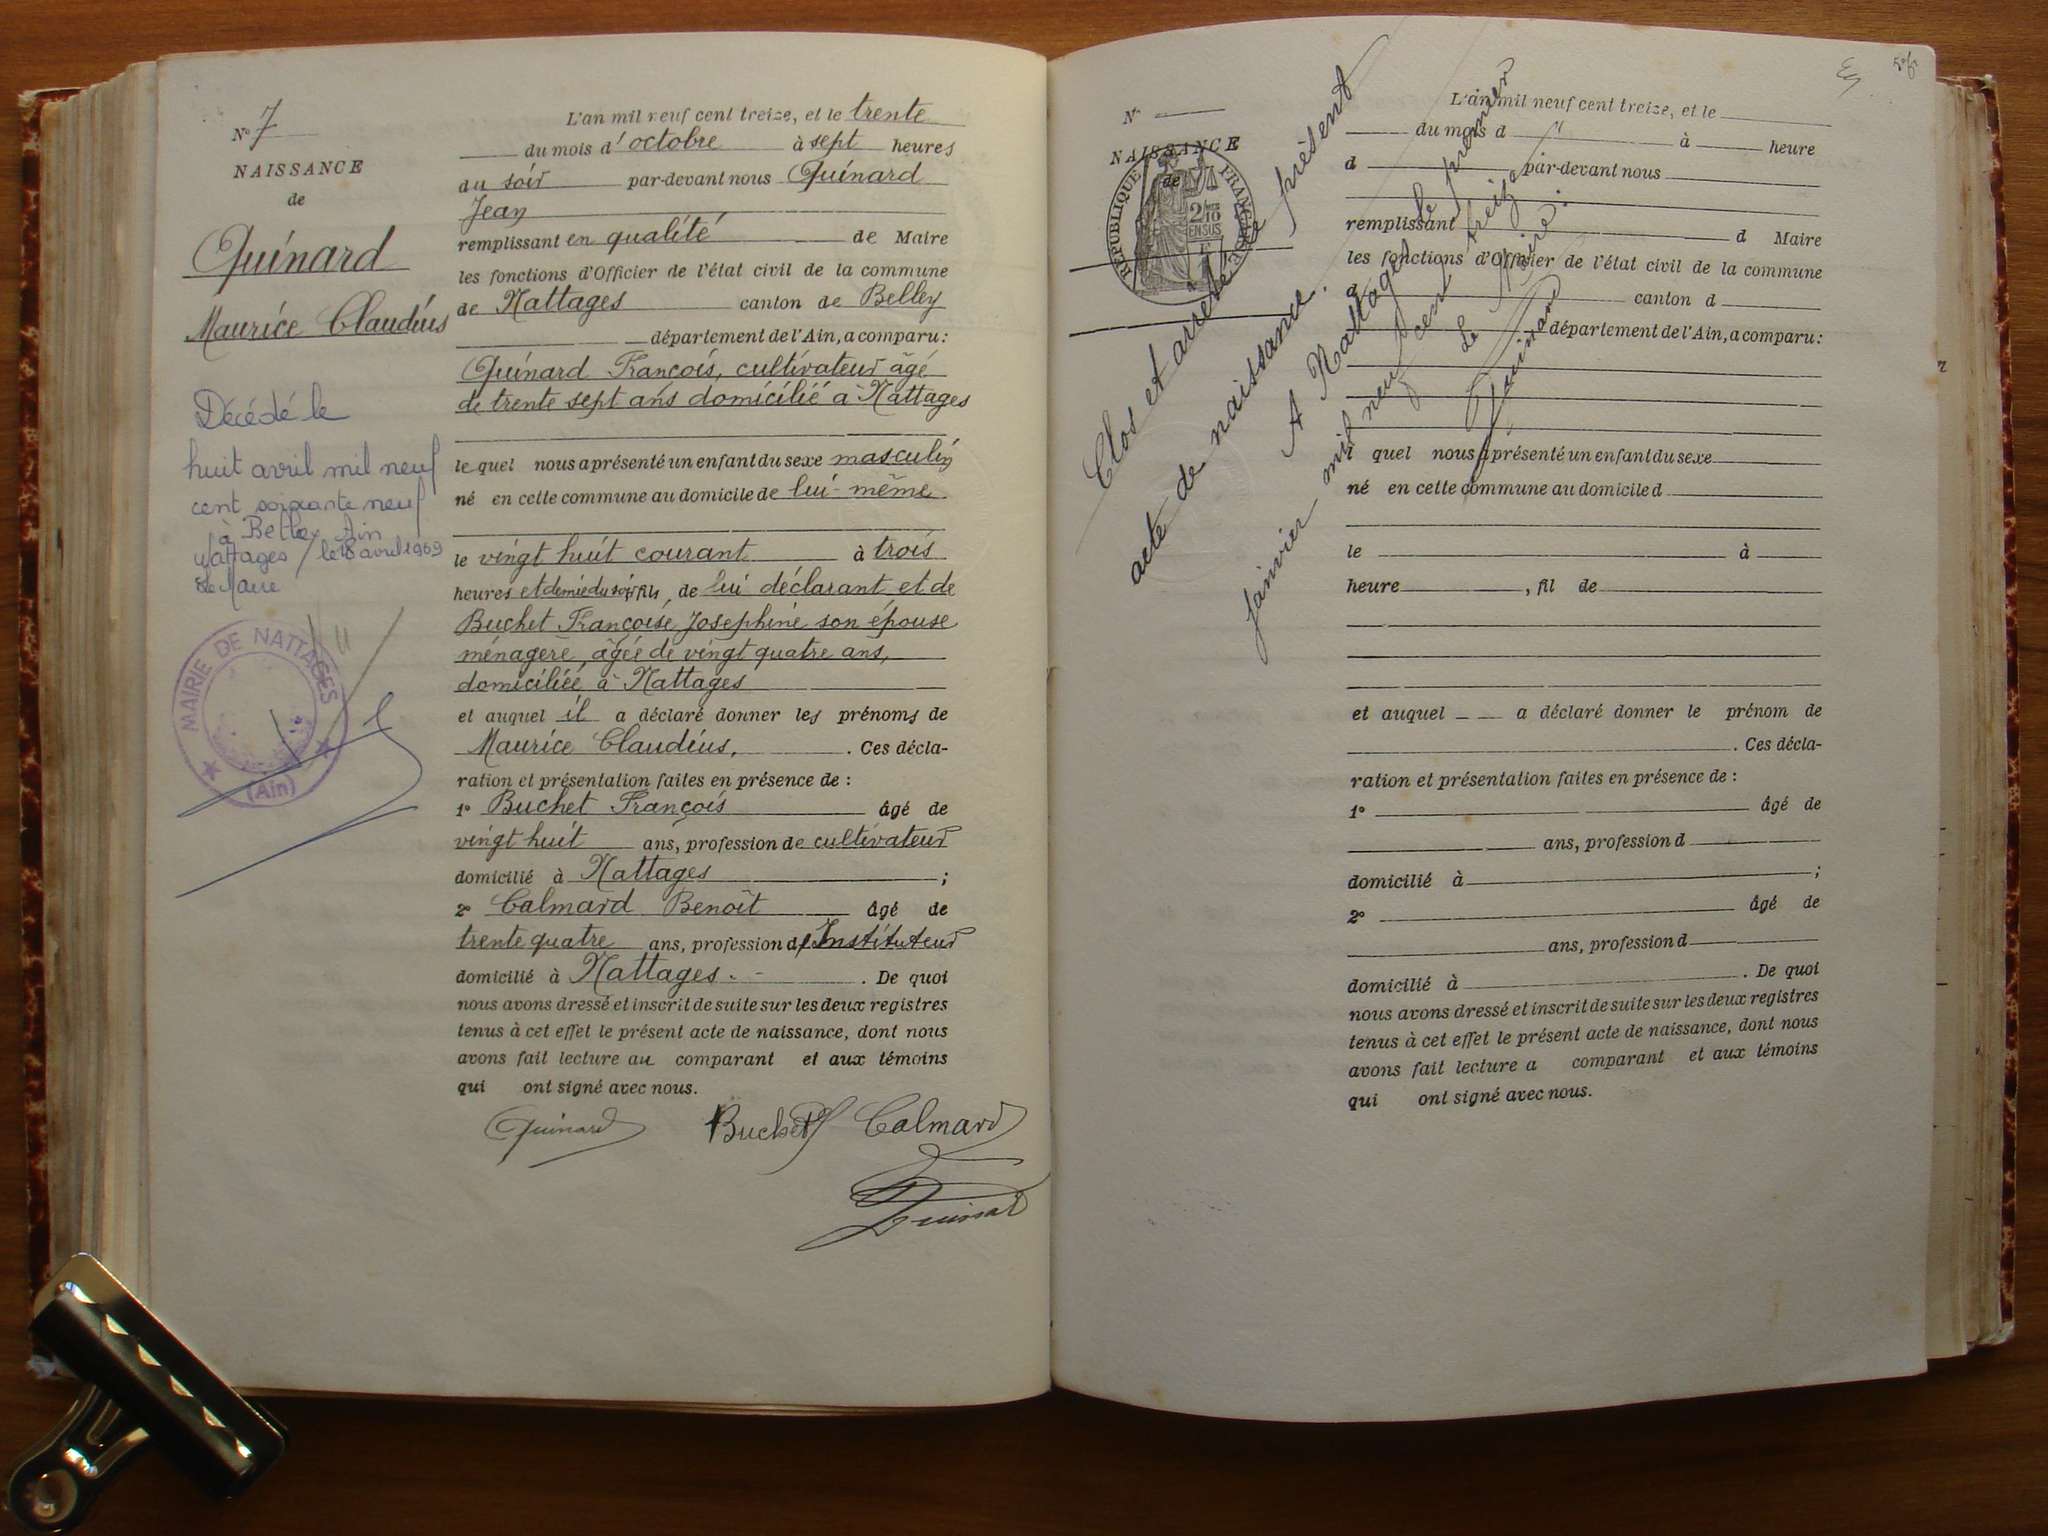 Nº 7
NAISSANCE
de
Guinard
Maurice Claudius
Décédé le
huit avril mil neuf
cent soixante neuf
à Belley Ain
Nattages / le 18 avril 1969
Le Maire
MAIRIE DE NATTAGES
(Ain)
L'an mil neuf cent treize, et le trente
du mois d'octobre à sept heures
du soir par-devant nous Guinard
Jean
remplissant en qualité de Maire
les fonctions d'Officier de l'état civil de la commune
de Nattages canton de Belley
département de l'Ain, a comparu :
Guinard François, cultivateur âgé
de trente sept ans domicilié à Nattages
le quel nous a présenté un enfant du sexe masculin
né en cette commune au domicile de lui-même
le vingt huit courant à trois
heures et demie du soir, fils de lui déclarant et de
Buchet Françoise Josephine son épouse
ménagère, âgée de vingt quatre ans,
domiciliée à Nattages
et auquel il a déclaré donner les prénoms de
Maurice Claudius, . Ces décla-
ration et présentation faites en présence de :
1º Buchet François âgé de
vingt huit ans, profession de cultivateur
domicilié à Nattages ;
2º Calmard Benoît âgé de
trente quatre ans, profession d'Instituteur
domicilié à Nattages. - . De quoi
nous avons dressé et inscrit de suite sur les deux registres
tenus à cet effet le présent acte de naissance, dont nous
avons fait lecture au comparant et aux témoins
qui ont signé avec nous.
Guinard Buchet Calmard
Guinard
Nº
NAISSANCE
de
REPUBLIQUE FRANÇAISE
2/10
EN SUS
Clos et arrêté le présent
acte de naissance.
A Nattages le premier
janvier mil neuf cent treize
Le Maire.
Guinard
L'an mil neuf cent treize, et le
du mois d à heure
d par-devant nous
remplissant d Maire
les fonctions d'Officier de l'état civil de la commune
d canton d
département de l'Ain, a comparu :
l quel nous a présenté un enfant du sexe
né en cette commune au domicile d
le à
heure , fil de
et auquel a déclaré donner le prénom de
. Ces décla-
ration et présentation faites en présence de :
1º âgé de
ans, profession d
domicilié à ;
2º âgé de
ans, profession d
domicilié à . De quoi
nous avons dressé et inscrit de suite sur les deux registres
tenus à cet effet le présent acte de naissance, dont nous
avons fait lecture a comparant et aux témoins
qui ont signé avec nous.